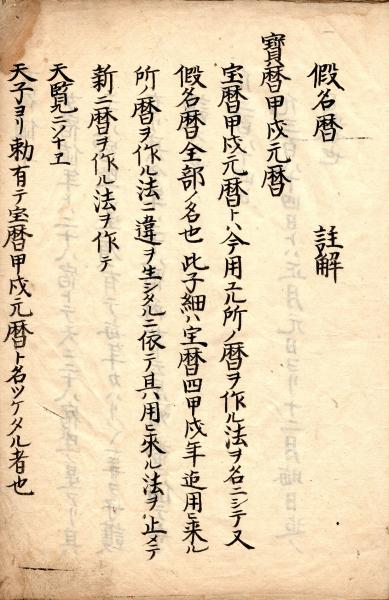 假名暦 註解
寳暦甲戌元暦
宝暦甲戌元暦トハ今用ユル所ノ暦ヲ作ル法ヲ名ニシテ又
假名暦全部ノ名也此子細ハ宝暦四甲戌年迠用ヒ来ル
所ノ暦ヲ作ル法ニ違ヲ生シタルニ依テ其用ヒ来ル法ヲ止メテ
新ニ暦ヲ作ル法ヲ作テ
天覧ニソナヱ
天子ヨリ勅有テ宝暦甲戌元暦ト名ツケタル者也